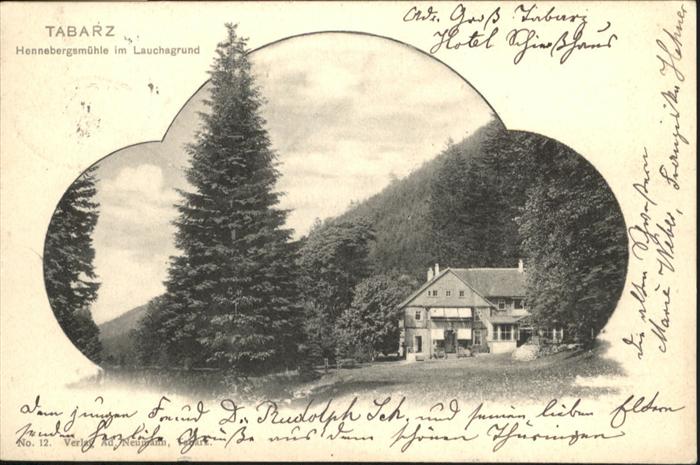 TABARZ
Hennebergsmühle im Lauchagrund
Adr. Groß Tabarz,
Hotel Schießhaus
Dem jungen Freund Dr. Rudolph Ich, und seinen lieben Eltern
senden herzliche Grüße aus dem schönen Thüringen
Die alten Schwestern
Marie Weber,
No. 12. Verlag Ad. Neumann, Tabarz.